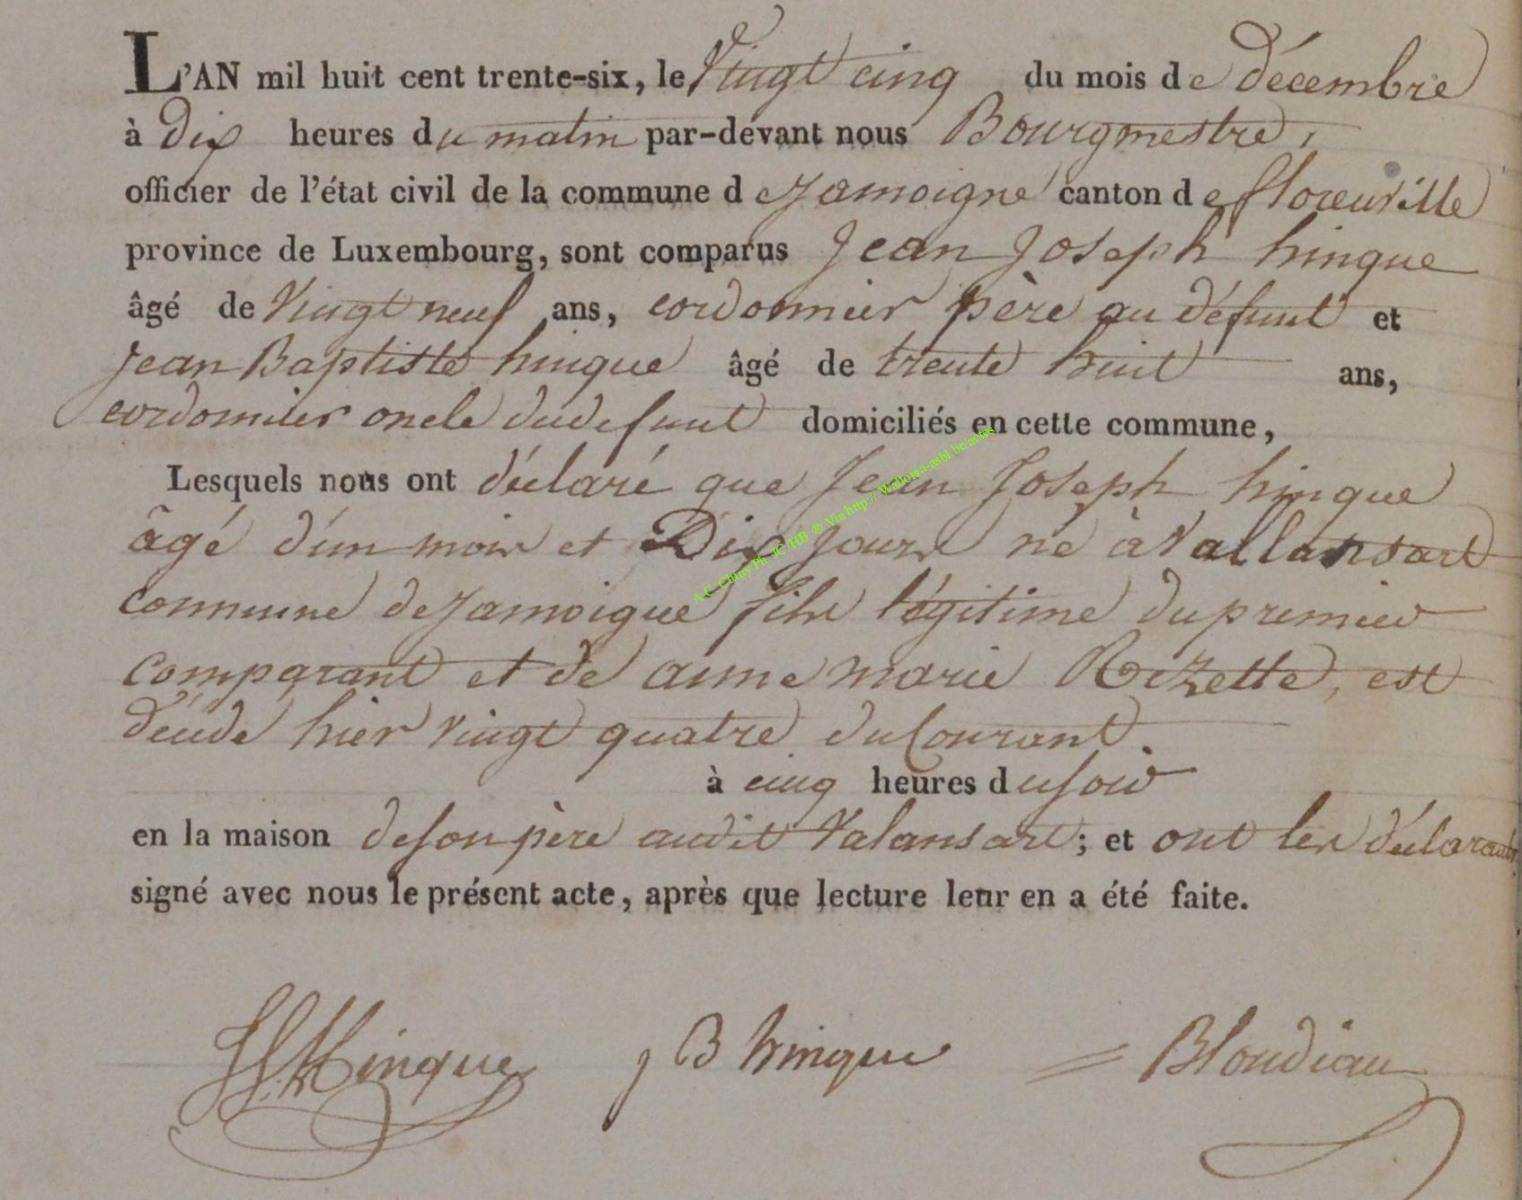 L'AN mil huit cent trente-six, le Vingt cinq du mois de décembre
à Dix heures du matin par-devant nous Bourgmestre,
officier de l'état civil de la commune de jamoigne canton de florenville
province de Luxembourg, sont comparus Jean Joseph hinque
âgé de Vingt neuf ans, cordonnier père au défunt et
Jean Baptiste hinque âgé de trente huit ans,
cordonnier oncle dudefunt domiciliés en cette commune,
Lesquels nous ont déclaré que Jean Joseph hinque
âgé d'un mois et Dix jours né à Vallansart
commune de jamoigne fils légitime du premier
comparant et de anne marie Rozette, est
décédé hier vingt quatre du Courant.
à cinq heures du soir
en la maison de son père audit Valansart; et ont les déclarants
signé avec nous le présent acte, après que lecture leur en a été faite.
JJ Hinque jB hinque Blondiau